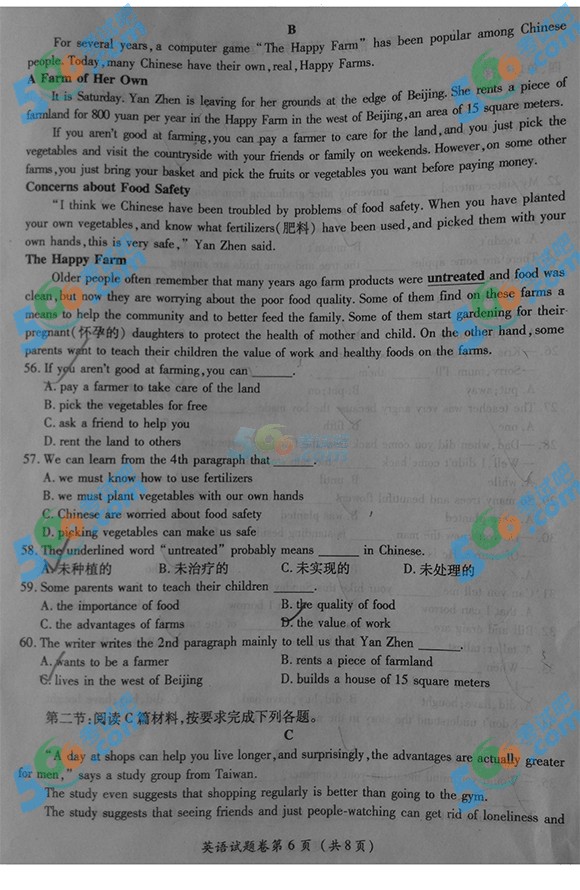 B
For several years, a computer game "The Happy Farm" has been popular among Chinese
people. Today, many Chinese have their own, real, Happy Farms.
A Farm of Her Own
It is Saturday. Yan Zhen is leaving for her grounds at the edge of Beijing. She rents a piece of
farmland for 800 yuan per year in the Happy Farm in the west of Beijing, an area of 15 square meters.
If you aren't good at farming, you can pay a farmer to care for the land, and you just pick the
vegetables and visit the countryside with your friends or family on weekends. However, on some other
farms, you just bring your basket and pick the fruits or vegetables you want before paying money.
Concerns about Food Safety
"I think we Chinese have been troubled by problems of food safety. When you have planted
your own vegetables, and know what fertilizers(肥料) have been used, and picked them with your
own hands, this is very safe," Yan Zhen said.
The Happy Farm
Older people often remember that many years ago farm products were untreated and food was
clean, but now they are worrying about the poor food quality. Some of them find on these farms a
means to help the community and to better feed the family. Some of them start gardening for their
pregnant(怀孕的) daughters to protect the health of mother and child. On the other hand, some
parents want to teach their children the value of work and healthy foods on the farms.
56. If you aren't good at farming, you can ______.
A. pay a farmer to take care of the land
B. pick the vegetables for free
C. ask a friend to help you
D. rent the land to others
57. We can learn from the 4th paragraph that ______.
A. we must know how to use fertilizers
B. we must plant vegetables with our own hands
C. Chinese are worried about food safety
D. picking vegetables can make us safe
58. The underlined word "untreated" probably means ______ in Chinese.
A. 未种植的 B. 未治疗的 C. 未实现的 D. 未处理的
59. Some parents want to teach their children ______.
A. the importance of food B. the quality of food
C. the advantages of farms D. the value of work
60. The writer writes the 2nd paragraph mainly to tell us that Yan Zhen ______.
A. wants to be a farmer B. rents a piece of farmland
C. lives in the west of Beijing D. builds a house of 15 square meters
第二节:阅读C篇材料,按要求完成下列各题。
C
"A day at shops can help you live longer, and surprisingly, the advantages are actually greater
for men," says a study group from Taiwan.
The study even suggests that shopping regularly is better than going to the gym.
The study suggests that seeing friends and just people-watching can get rid of loneliness and
英语试题卷第6页(共8页)